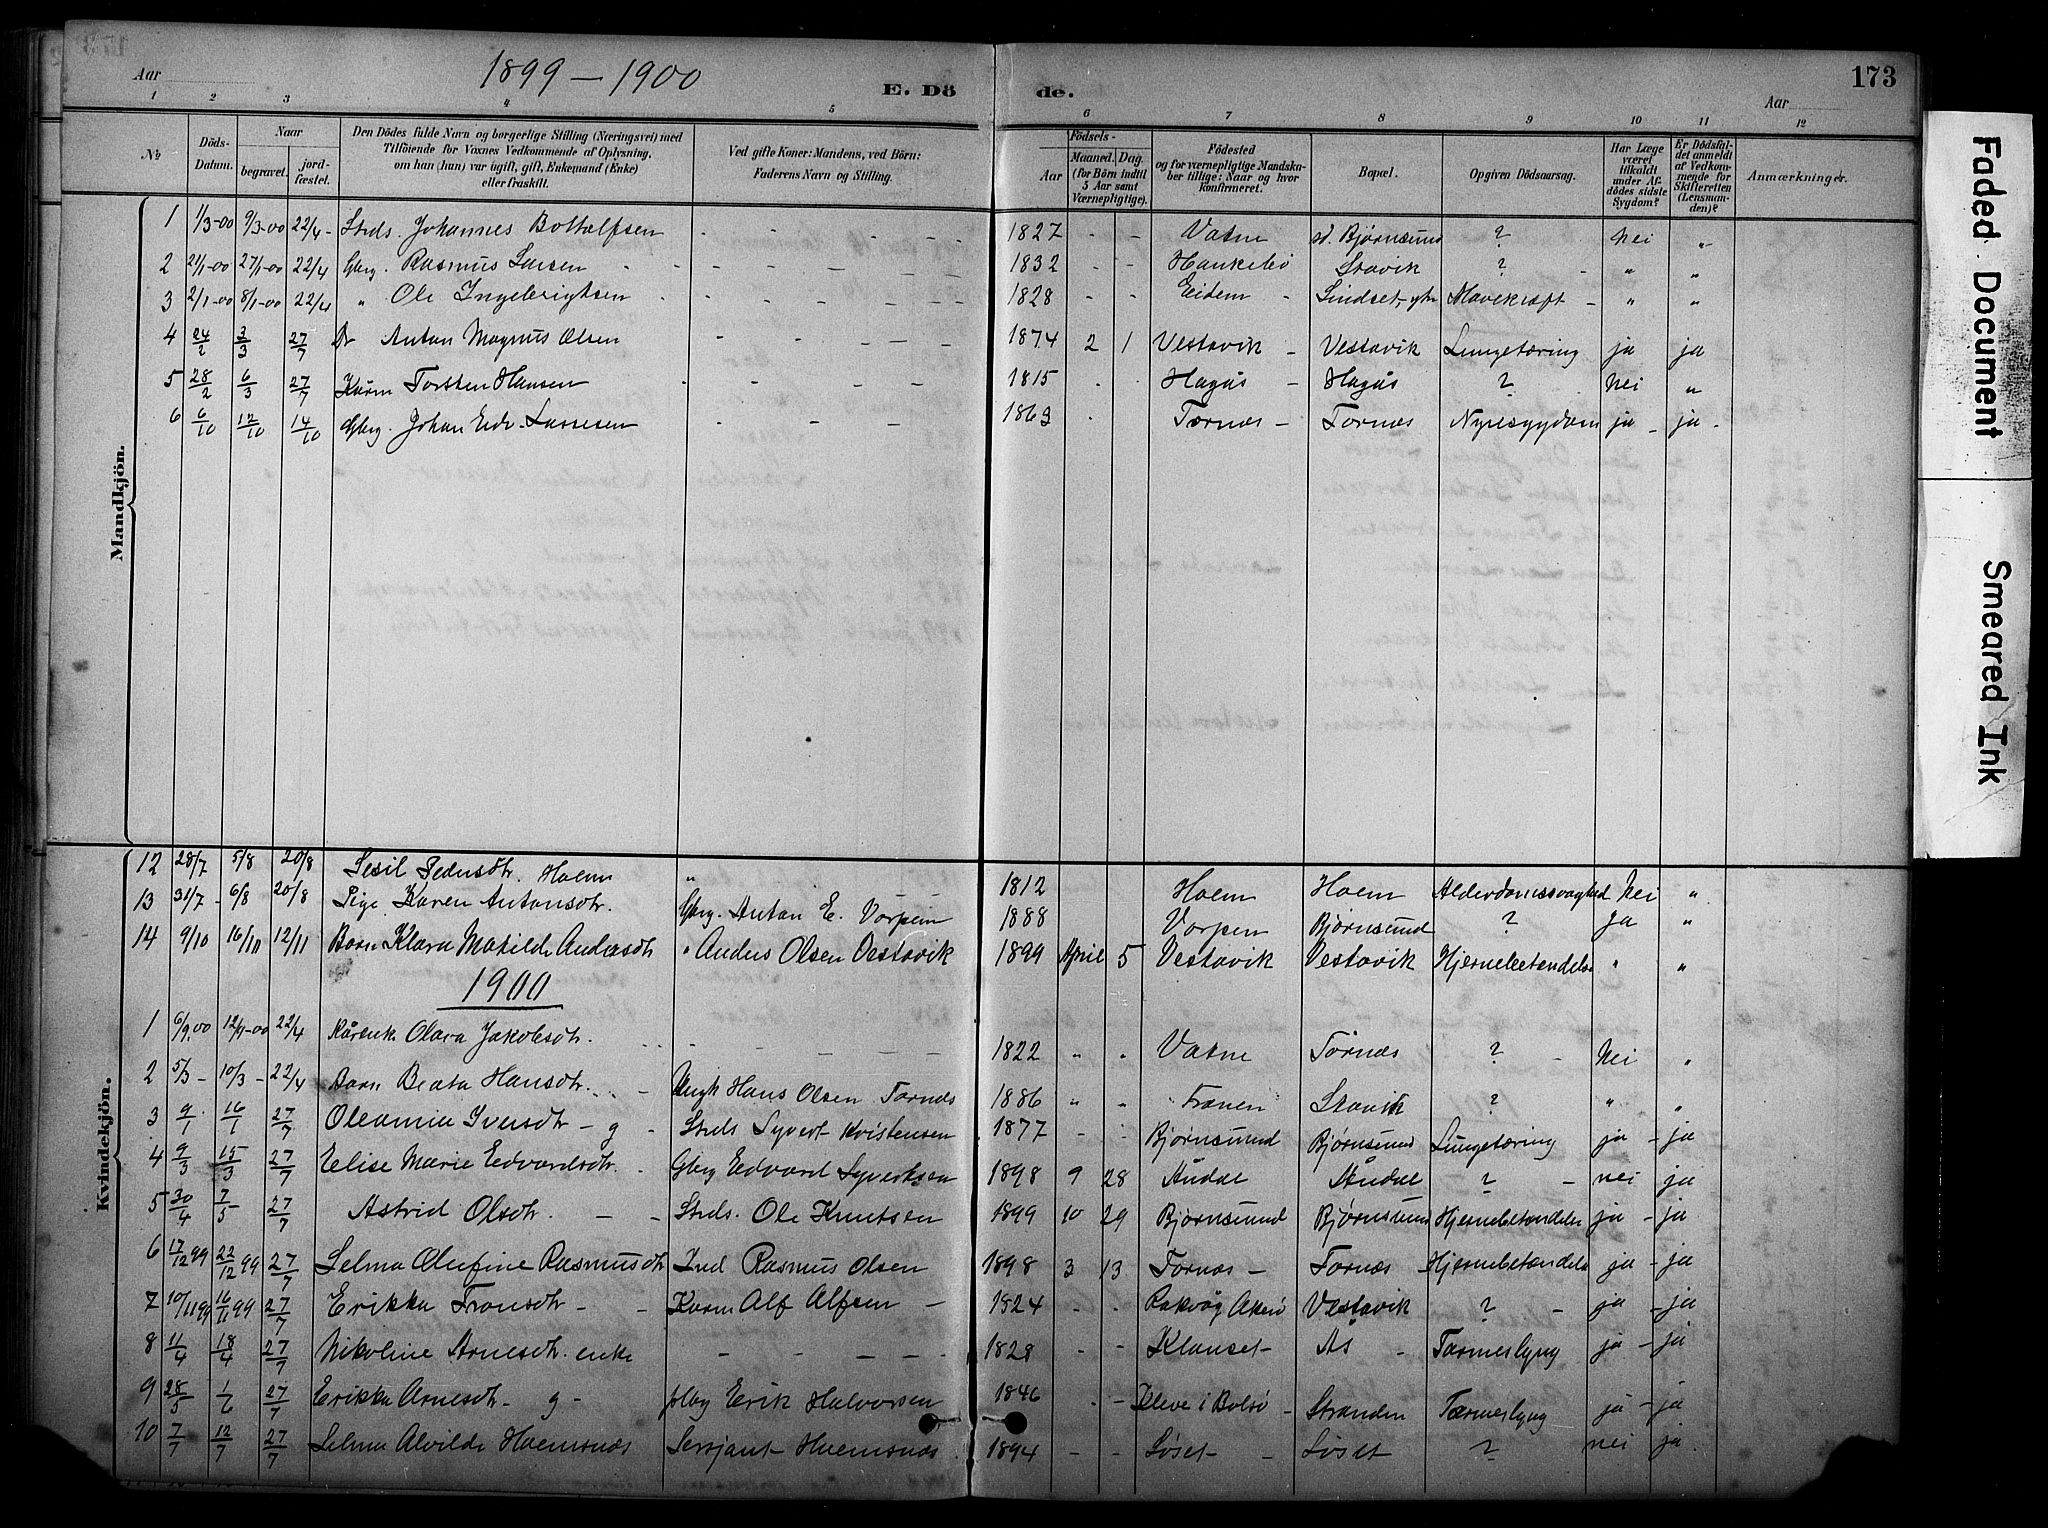 Aar 1899 – 1900 E. Dö de. Aar 173
1 2 3 4 5 6 7 8 9 10 11 12
№ Döds-Datum. Naar begravet. jord-fæstet. Den Dödes fulde Navn og borgerlige Stilling (Næringsvei) med Tilföiende for Voxnes Vedkommende af Oplysning, om han (hun) var ugift, gift, Enkemand (Enke) eller fraskilt. Ved gifte Koner: Mandens, ved Börn: Faderens Navn og Stilling. Födsels- Aar Maaned. Dag. (for Börn indtil 5 Aar samt Værnepligtige). Födested og for værnepligtige Mandskaber tillige: Naar og hvor konfirmeret. Bopæl. Opgiven Dödsaarsag. Har Læge været tilkaldt under Afdödes sidste Sygdom? Er Dödsfaldet anmeldt af Vedkommende for Skifteretten (Lensmanden)? Anmærkninger.
Mandkjön.
1 1/3-00 9/3-00 22/4 - Strds. Johannes Bottolfsen - - - - 1827 - - Vatne sd. Bjørnsund ? nei "
2 21/1-00 27/1-00 22/4 Gbrg. Rasmus Larsen - - - - 1832 - - Haukebø Stavik ? - " "
3 2/1-00 8/1-00 22/4 " Ole Ingebrigtsen - - - - 1828 - - Eidem - Lindset, ytr Mavekræft - " "
4 24/2 3/3 27/7 Dr Anton Magnus Olsen - - - - 1874 2 1 Vestavik - Vestavik Lungetæring ja ja
5 28/2 6/3 27/7 Kårm Torsten Hansen - - - - 1815 - - Hagås - Hagås ? nei "
6 6/10 12/10 14/10 Gbrg. Johan Edv. Lassesen - - - - 1863 - Tornæs - Tornæs Nyresygdom ja - ja -
Kvindekjön.
12 28/7 5/8 20/8 Sesil Pedersdtr. Hoem " 1812 Hoem Hoem Alderdomssvaghed nei "
13 31/7 6/8 20/8 Pige Karen Antonsdtr. Gbrg. Anton E. Vorpen 1888 Vorpen Bjørnsund ? ja "
14 9/10 16/10 12/11 Barn Klara Matilde Andersdtr " Anders Olsen Vestavik 1899 April 5 Vestavik Vestavik Hjernebetændelse " "
1900
1 6/1.00 12/1-00 22/4 Kårenk. Olava Jakobsdtr. - - - - 1822 " " Vatne Tornæs ? - nei "
2 5/3 - 10/3 - 22/4 Barn Beata Hansdtr. - Ungk Hans Olsen Tornæs 1886 " " Frænen Stavik ? " "
3 9/1 16/1 27/7 Oleanna Iversdtr - g - Strds Syvert Kristensen 1877 - - Bjørnsund Bjørnsund Lungetæring ja - ja
4 9/3 15/3 27/7 Elise Marie Edvardsdtr. - Gbrg Edvard Syvertsen 1898 9 28 Aandal Aandal ? - nei ja
5 30/4 7/5 27/7 Astrid Olsdtr. - - Strds. Ole Knutsen 1899 10 29 Bjørnsund Bjørnsund Hjernebetændelse ja - ja
6 17/12 99 22/12 99 27/7 Selma Olufine Rasmusdtr Ind Rasmus Olsen 1898 3 13 Tornæs - Tornæs Hjernebetændelse ja - ja
7 10/11 99 16/11 99 27/7 Erikka Tronsdtr - - Kaarm Alf Alfsen - 1824 - - Rakvåg Akerø Vestavik ? - ja - ja
8 11/4 18/4 27/7 Nikoline Arnesdtr. enke - - - - 1828 - - Klauset - Ås - Tarmeslyng ja - ja
9 28/5 1/6 27/7 Erikka Arnesdtr. g - pbrg Erik Halvorsen 1846 - - Kleve i Bolsø - Stranden Tarmeslyng ja - ja
10 7/7 12/7 27/7 Selma Alvilde Hoemsnæs Sersjant Hoemsnæs 1894 - - Løset - Løset ? nei ja
Faded Document
Smeared Ink